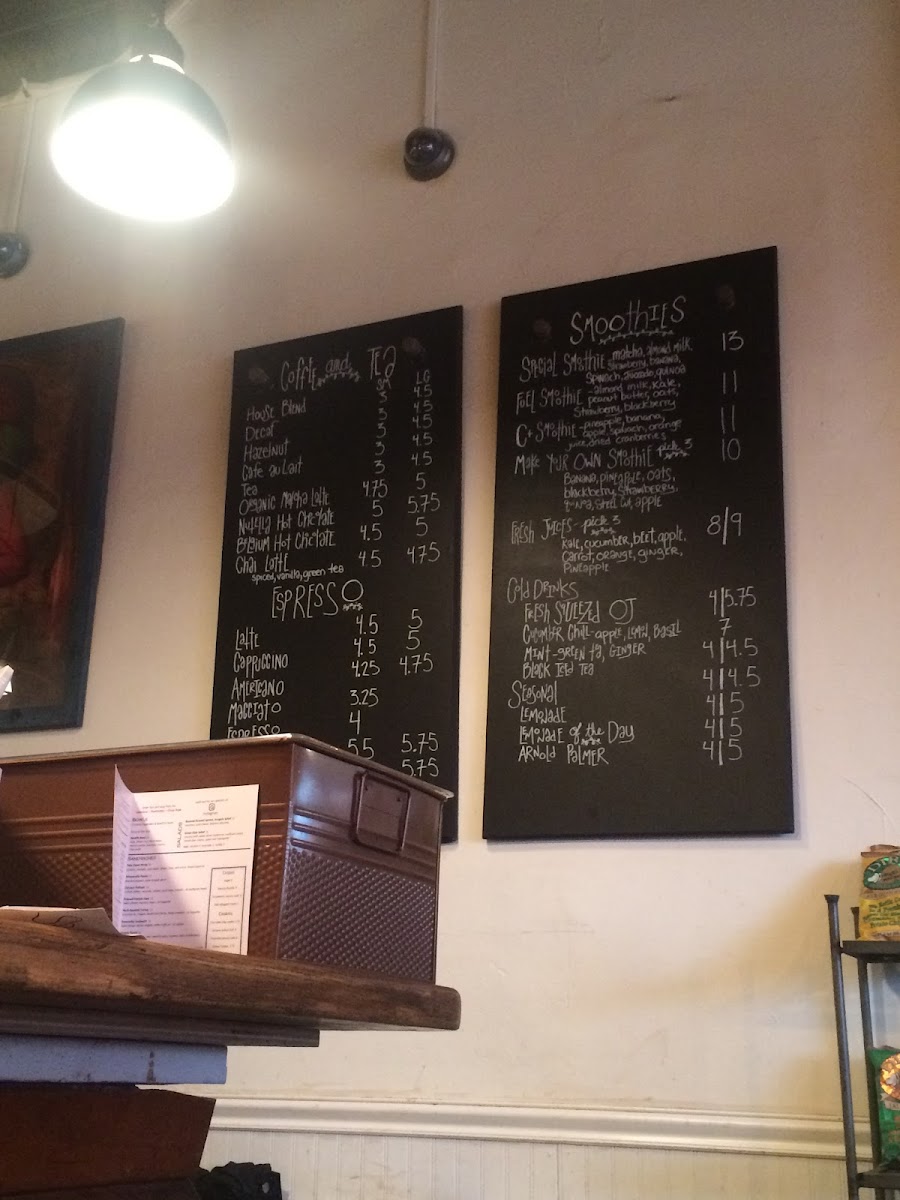 Coffee and Tea
SM LG
House Blend 3 4.5
Decaf 3 4.5
Hazelnut 3 4.5
Cafe au Lait 3 4.5
Tea 3 4.5
Organic Matcha Latte 4.75 5
Nutella Hot Choclate 5 5.75
Belgium Hot Choclate 4.5 5
Chai Latte 4.5 4.75
spiced, vanilla, green tea
ESPRESSO
Latte 4.5 5
Cappuccino 4.5 5
Americano 4.25 4.75
Macciato 3.25
Espresso 4
5.5 5.75
5.75
SMOOTHIES
Special Smoothie - matcha, almond milk 13
strawberry, banana,
spinach, avocado, quinoa
Fuel Smoothie - almond milk, kale, 11
peanut butter, oats,
strawberry, blackberry
C+ Smoothie - pineapple, banana, 11
apple, spinach, orange
juice, dried cranberries
Make Your Own Smoothie pick 3 10
Banana, pineapple, oats,
blackberry, strawberry,
apple
Fresh Juices - pick 3 8/9
Kale, cucumber, beet, apple,
Carrot, orange, ginger,
Pineapple
Cold Drinks
Fresh Squeezed OJ 4|5.75
Cucumber Chill - apple, lemon, basil 7
Mint - green tea, ginger 4|4.5
Black Iced Tea 4|4.5
Seasonal
Lemonade 4|5
Lemonade of the Day 4|5
Arnold Palmer 4|5
SALADS